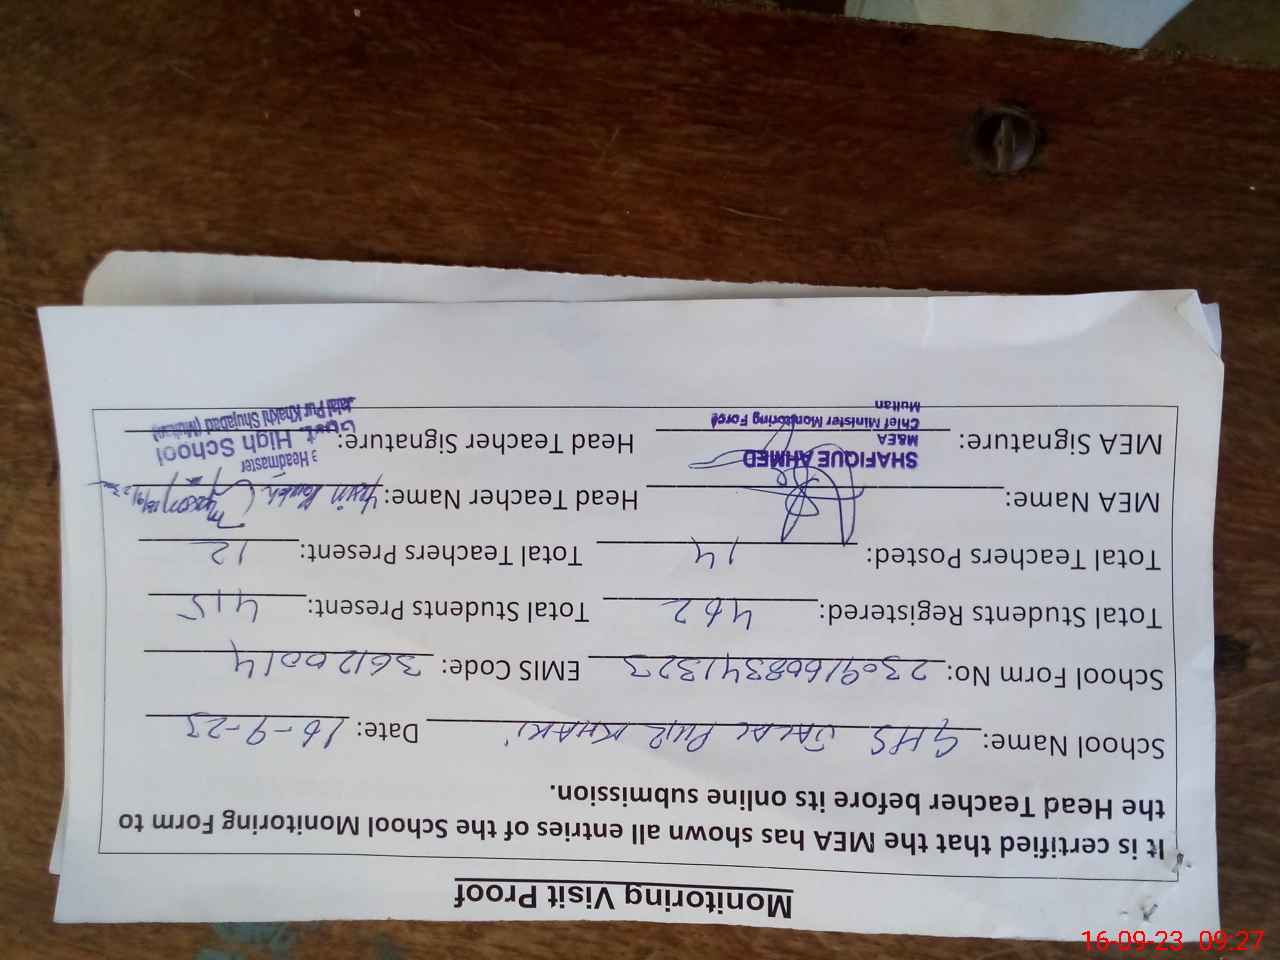 Monitoring Visit Proof
It is certified that the MEA has shown all entries of the School Monitoring Form to
the Head Teacher before its online submission.
School Name: GHS JALAL PUR KHAKI Date: 16-9-23
School Form No: 23091608341323 EMIS Code: 36120014
Total Students Registered: 462 Total Students Present: 415
Total Teachers Posted: 14 Total Teachers Present: 12
MEA Name: Head Teacher Name:
MEA Signature: Head Teacher Signature:
SHAFIQUE AHMED
M&EA
Chief Minister Monitoring Force
Multan
Headmaster
Govt. High School
Jalal Pur Khakhi Shujabad (Multan)
16-09-23 09:27